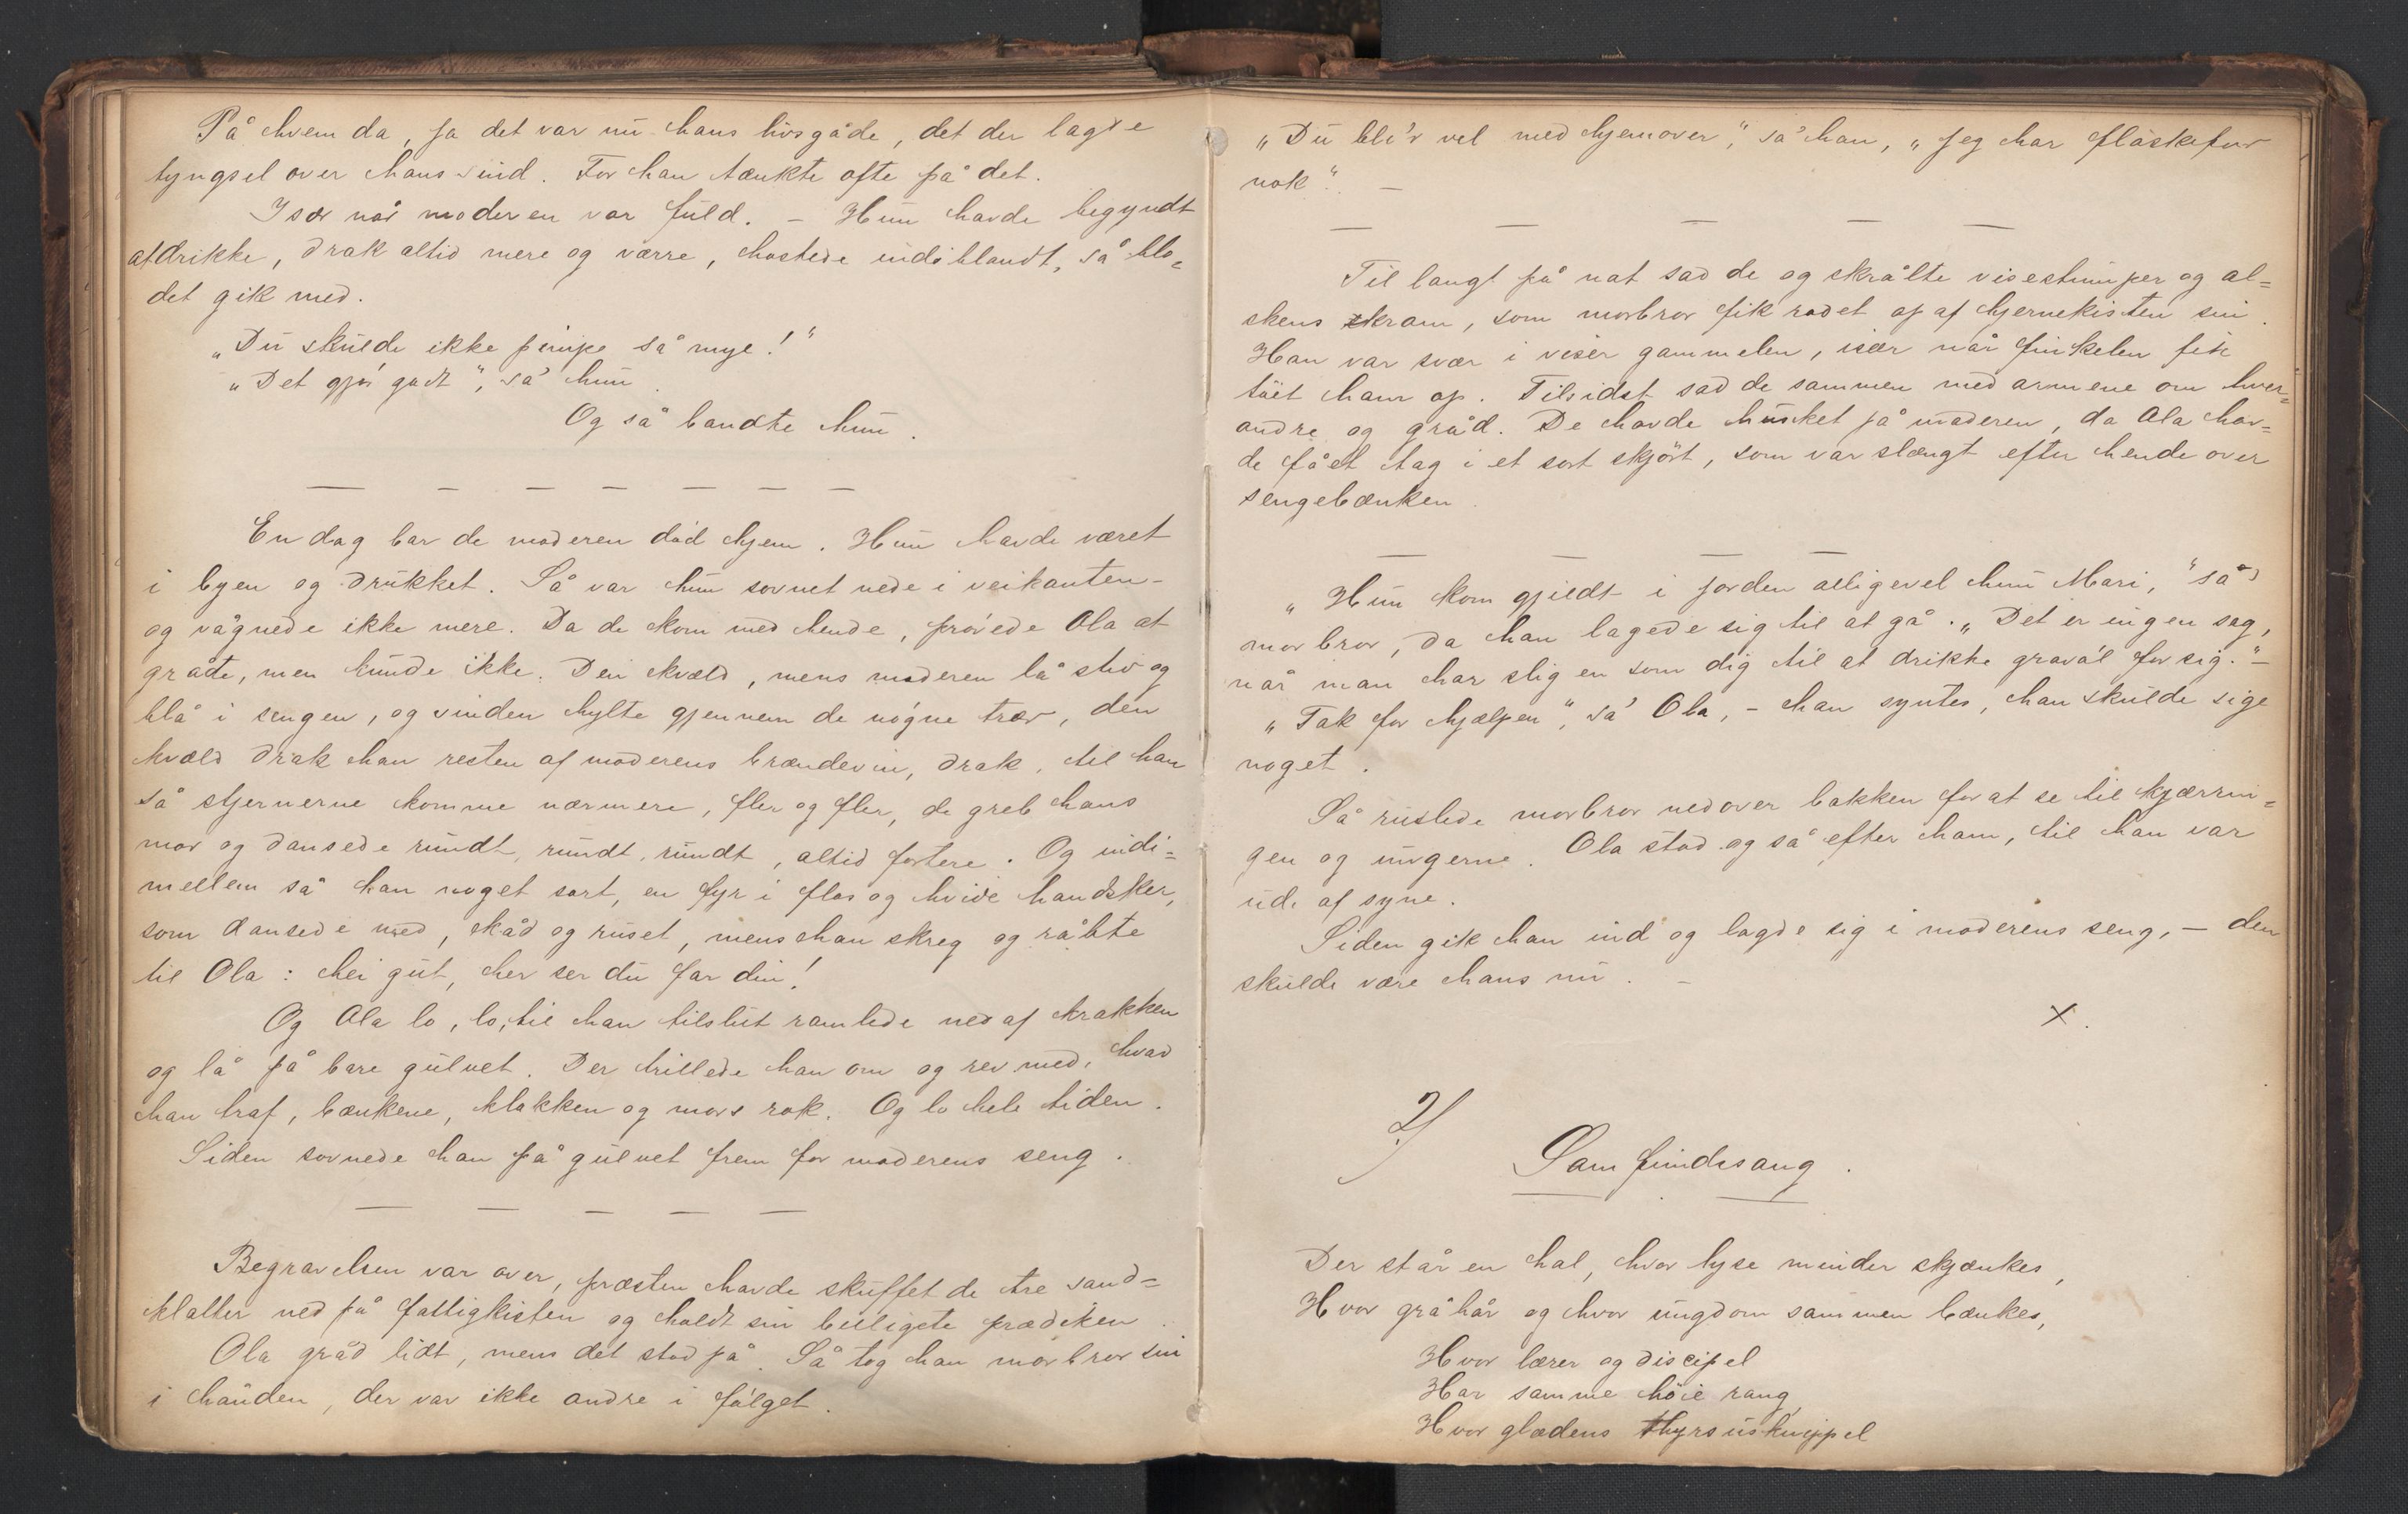 På hvem da, ja det var nu hans livsgåde, det der lagde
tyngsel over hans sind. For han tænkte ofte på det.
Især når moderen var fuld. – Hun havde begyndt
at drikke, drak altid mere og værre, hostede indiblandt, så blo=
det gik med.
„Du skulde ikke pimpe så mye!“
„Det gjø'r godt“, sa' hun.
Og så bandte hun.
— — — — — — —
En dag bar de moderen død hjem. Hun havde været
i byen og drukket. Så var hun sovnet nede i veikanten –
og vågnede ikke mere. Da de kom med hende, prøvede Ola at
gråte, men kunde ikke. Den kvæld, mens moderen lå stiv og
blå i sengen, og vinden hylte gjennem de nøgne trær, den
kvæld drak han resten af moderens brændevin, drak, til han
så stjernerne komme nærmere, fler og fler, de greb hans
mor og dansede rundt, rundt, rundt, altid fortere. Og indi=
mellem så han noget sort, en fyr i flos og hvide handsker,
som dansede med, skåd og ruset, mens han skreg og råbte
til Ola: hei gut, her ser du far din!
Og Ola lo, lo, til han tilslut ramlede ned af krakken
og lå på bare gulvet. Der trillede han om og rev med, hvad
han traf, bænkene, klokken og mors rok. Og lo hele tiden.
Siden sovnede han på gulvet frem for moderens seng.
— — — — —
Begravelsen var over, præsten havde skuffet de tre sand=
klatter ned på fattigkisten og holdt sin billigste prædiken.
Ola gråd lidt, mens det stod på. Så tog han morbror sin
i hånden, der var ikke andre i følget.
„Du bli'r vel med hjemover“, sa' han, „Jeg har flaskefor
nok“. –
— — — — —
Til langt på nat sad de og skrålte visestumper og al=
skens skram, som morbror fik rodet op af hjernekisten sin.
Han var svær i viser gammelen, især når finkelen fik
tøet ham op. Tilsidst sad de sammen med armene om hver=
andre og gråd. De havde husket på moderen, da Ola hav=
de fået tag i et sort skjørt, som var slængt efter hende over
sengebænken.
— — — —
„Hun kom gjildt i jorden alligevel hun Mari,“ sa'
morbror, da han lagede sig til at gå. „Det er ingen sag,
når man har slig en som dig til at drikke gravøl for sig.“ –
„Tak for hjælpen“, sa' Ola, – han syntes, han skulde sige
noget.
Så ruslede morbror nedover bakken for at se til kjærrin=
gen og ungerne. Ola stod og så efter ham, til han var
ude af syne.
Siden gik han ind og lagde sig i moderens seng, – den
skulde være hans nu. –
X.
2/
Samfundssang.
Der står en hal, hvor lyse minder skjænkes,
Hvor gråhår og hvor ungdom sammen bænkes,
Hvor lærer og discipel
Har samme høie rang,
Hvor glædens thyrsuskneppel